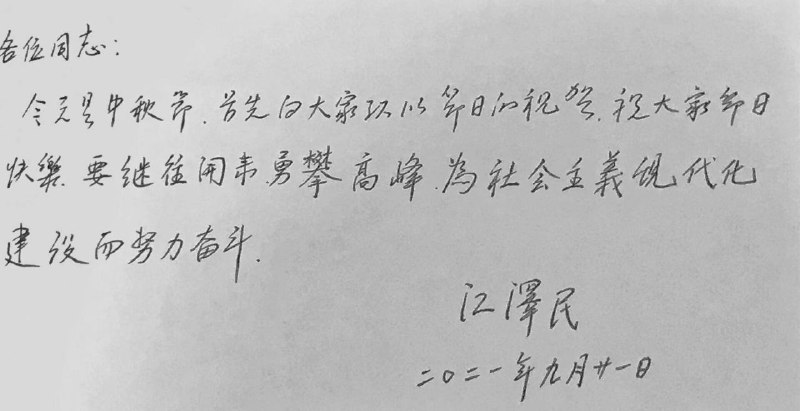 各位同志:
今天是中秋节.首先向大家致以节日的祝贺.祝大家节日
快樂.要继往開来.勇攀高峰.為社会主義现代化
建设而努力奋斗.
江澤民
二〇二一年九月廿一日